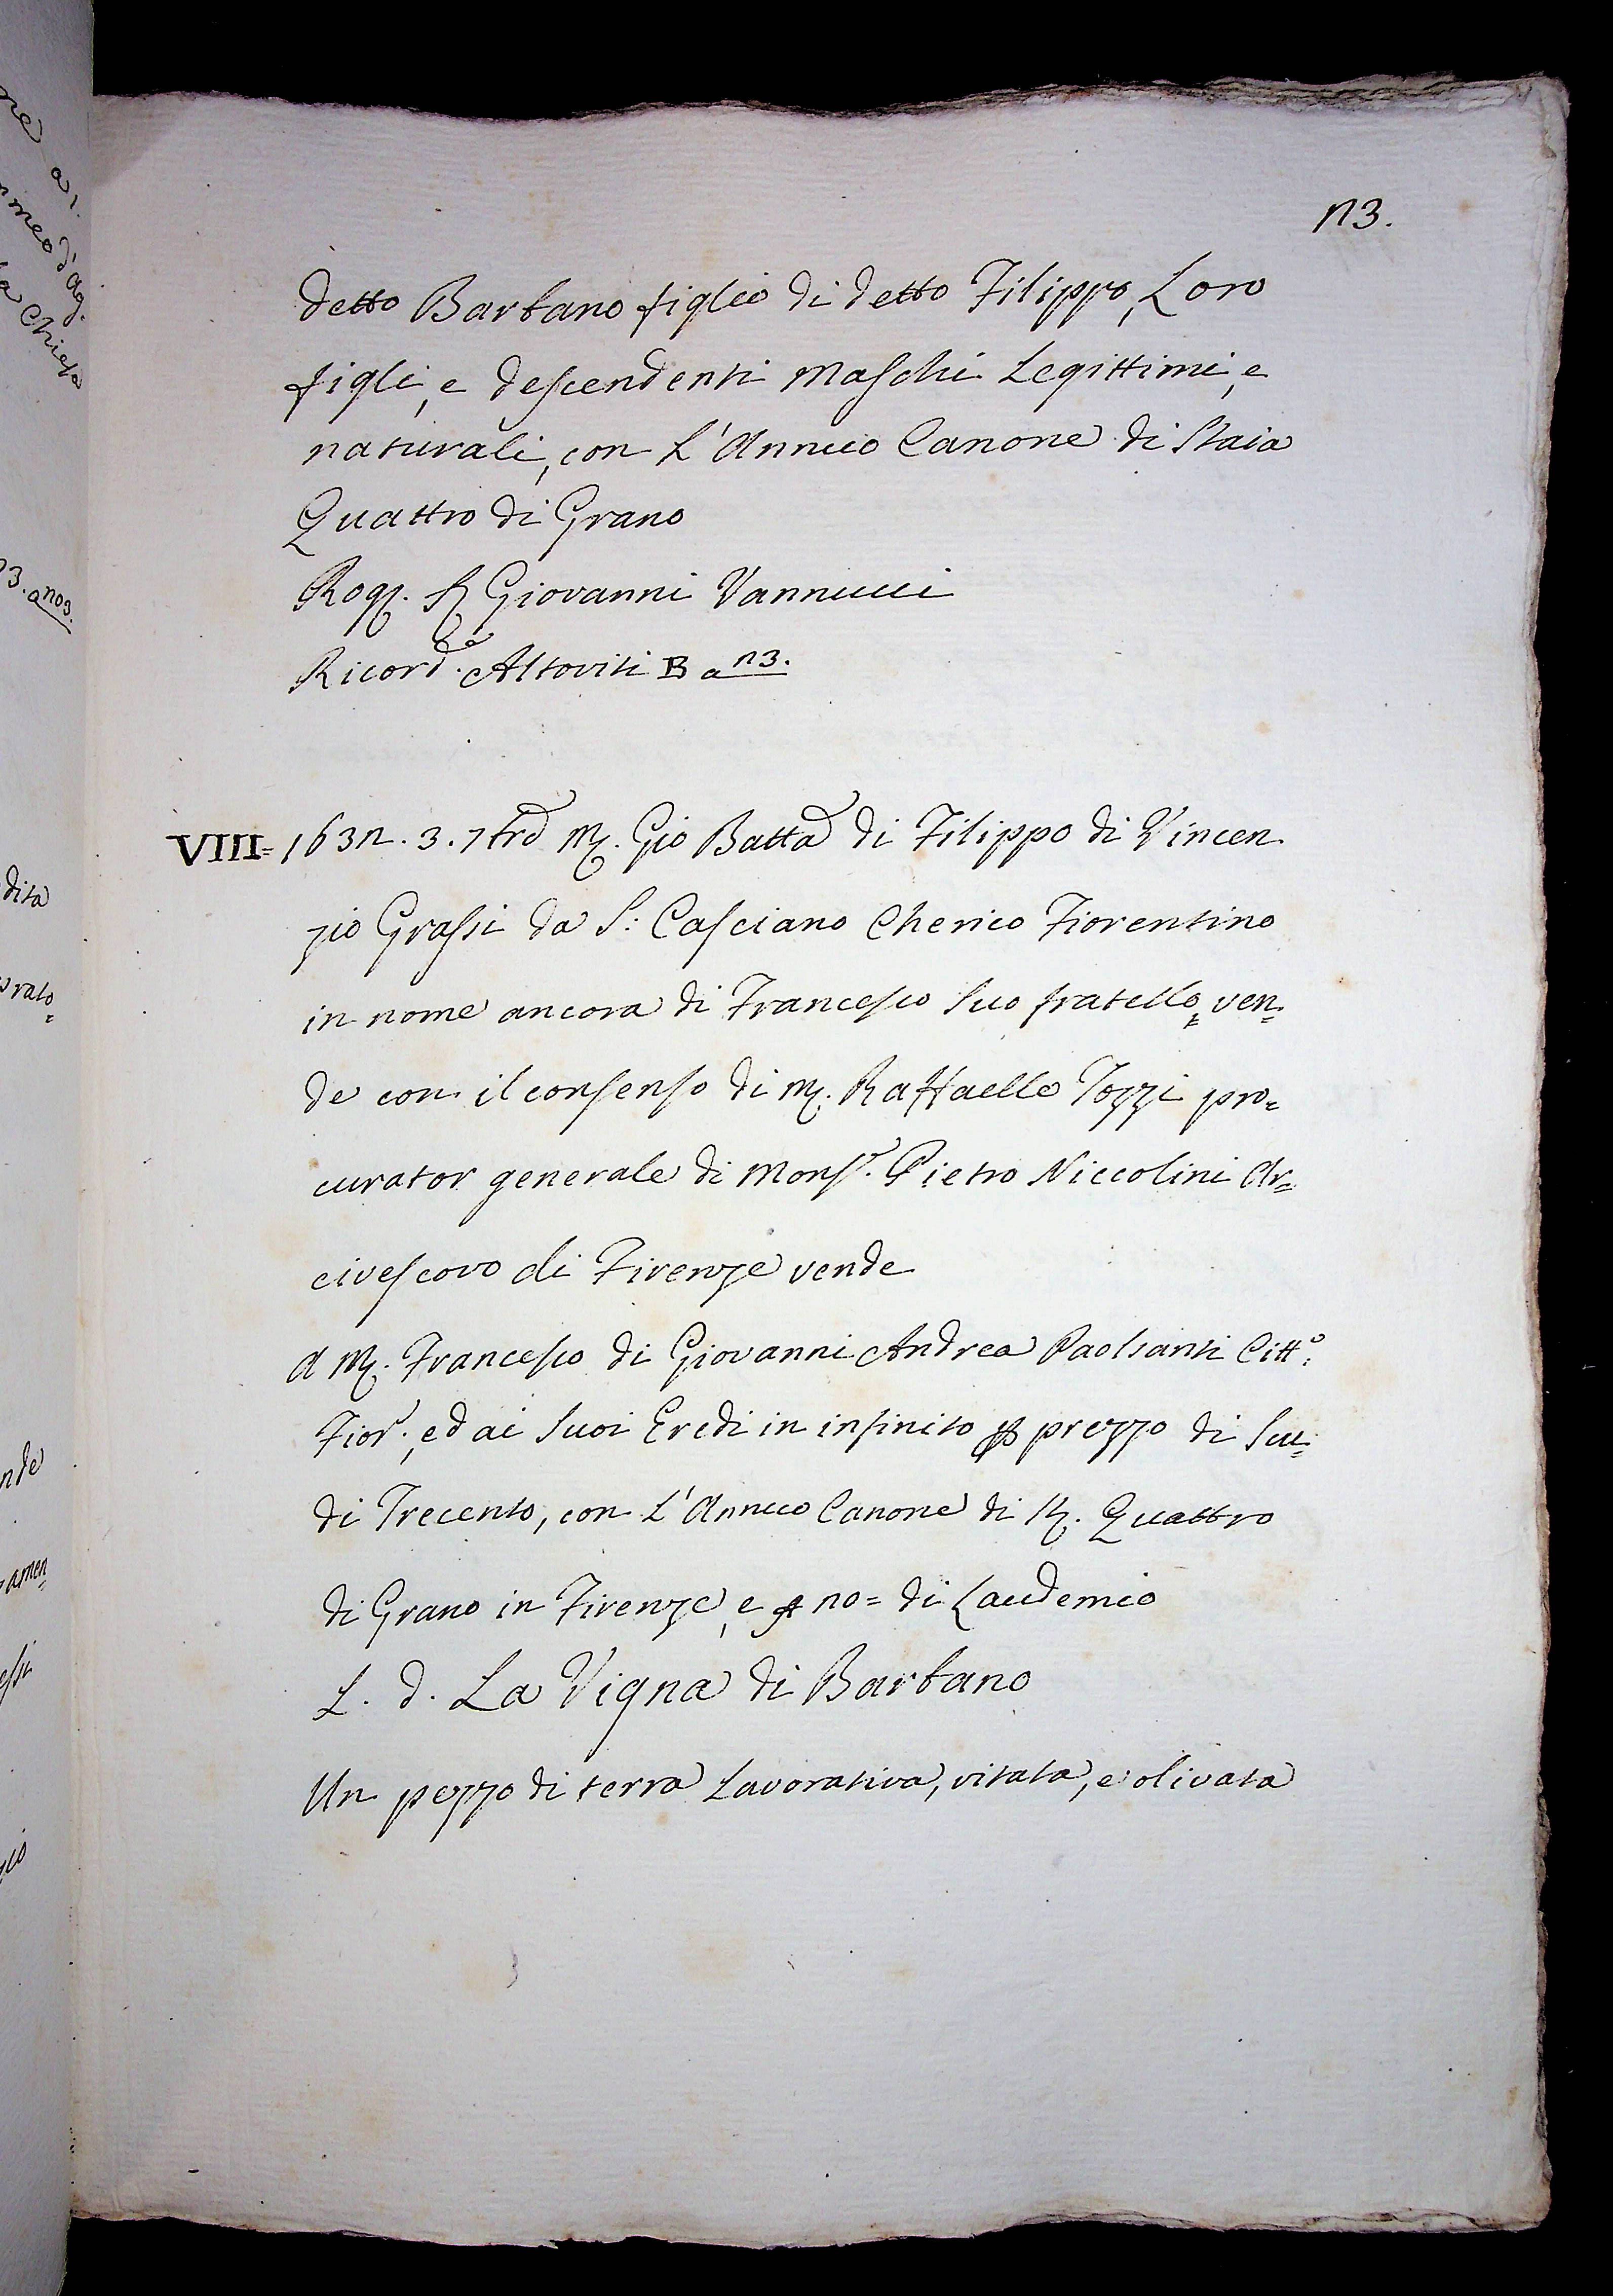 n3.
detto Barbano figlio di detto Filippo, Loro
figli, e descendenti Maschi Legittimi, e
naturali, con L'Annuo Canone di Staia
Quattro di Grano
Rog. S. Giovanni Vannucci
Ricord.e Altoviti B a n3.
VIII= 163n. 3. 7brē M. Gio Batta di Filippo di Vincen
zio Grassi da S: Casciano Cherico Fiorentino
in nome ancora di Francesco suo fratello, ven=
de con il consenso di M. Raffaello Tozzi pro=
curator generale di Mons.r Pietro Niccolini Ar=
civescovo di Firenze vende
A M. Francesco di Giovanni Andrea Paolsanti Citt.o
Fior., ed ai Suoi Eredi in infinito p prezzo di Scu=
di Trecento, con L'Annuo Canone di St. Quattro
di Grano in Firenze, e no= di Laudemio
L. d. La Vigna di Barbano
Un pezzo di terra Lavorativa, vitata, e olivata
dita
nde
amen